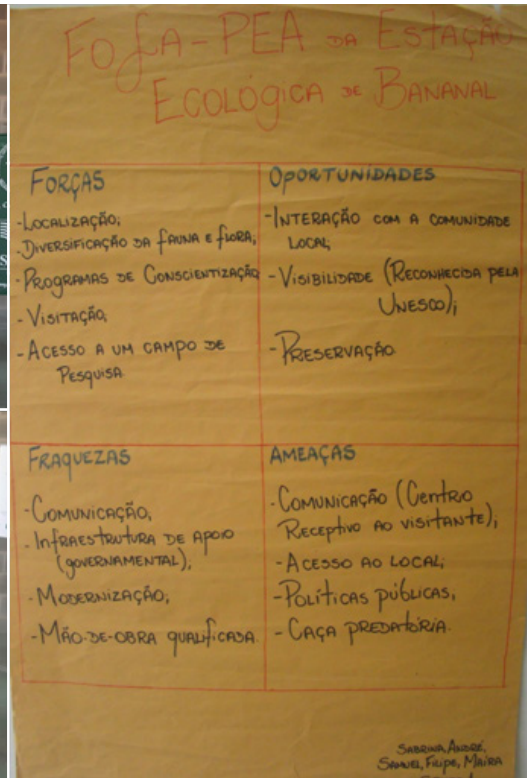 FOFA-PEA DA ESTAÇÃO
ECOLÓGICA DE BANANAL
FORÇAS
-LOCALIZAÇÃO;
-DIVERSIFICAÇÃO DA FAUNA E FLORA;
-PROGRAMAS DE CONSCIENTIZAÇÃO
-VISITAÇÃO;
-ACESSO A UM CAMPO DE
PESQUISA.
OPORTUNIDADES
-INTERAÇÃO COM A COMUNIDADE
LOCAL;
-VISIBILIDADE (RECONHECIDA PELA
UNESCO);
-PRESERVAÇÃO.
FRAQUEZAS
-COMUNICAÇÃO;
-INFRAESTRUTURA DE APOIO
(GOVERNAMENTAL);
-MODERNIZAÇÃO;
-MÃO-DE-OBRA QUALIFICADA.
AMEAÇAS
-COMUNICAÇÃO (CENTRO
RECEPTIVO AO VISITANTE);
-ACESSO AO LOCAL;
-POLÍTICAS PÚBLICAS;
-CAÇA PREDATÓRIA.
SABRINA, ANDRÉ,
SAMUEL, FILIPE, MAÍRA